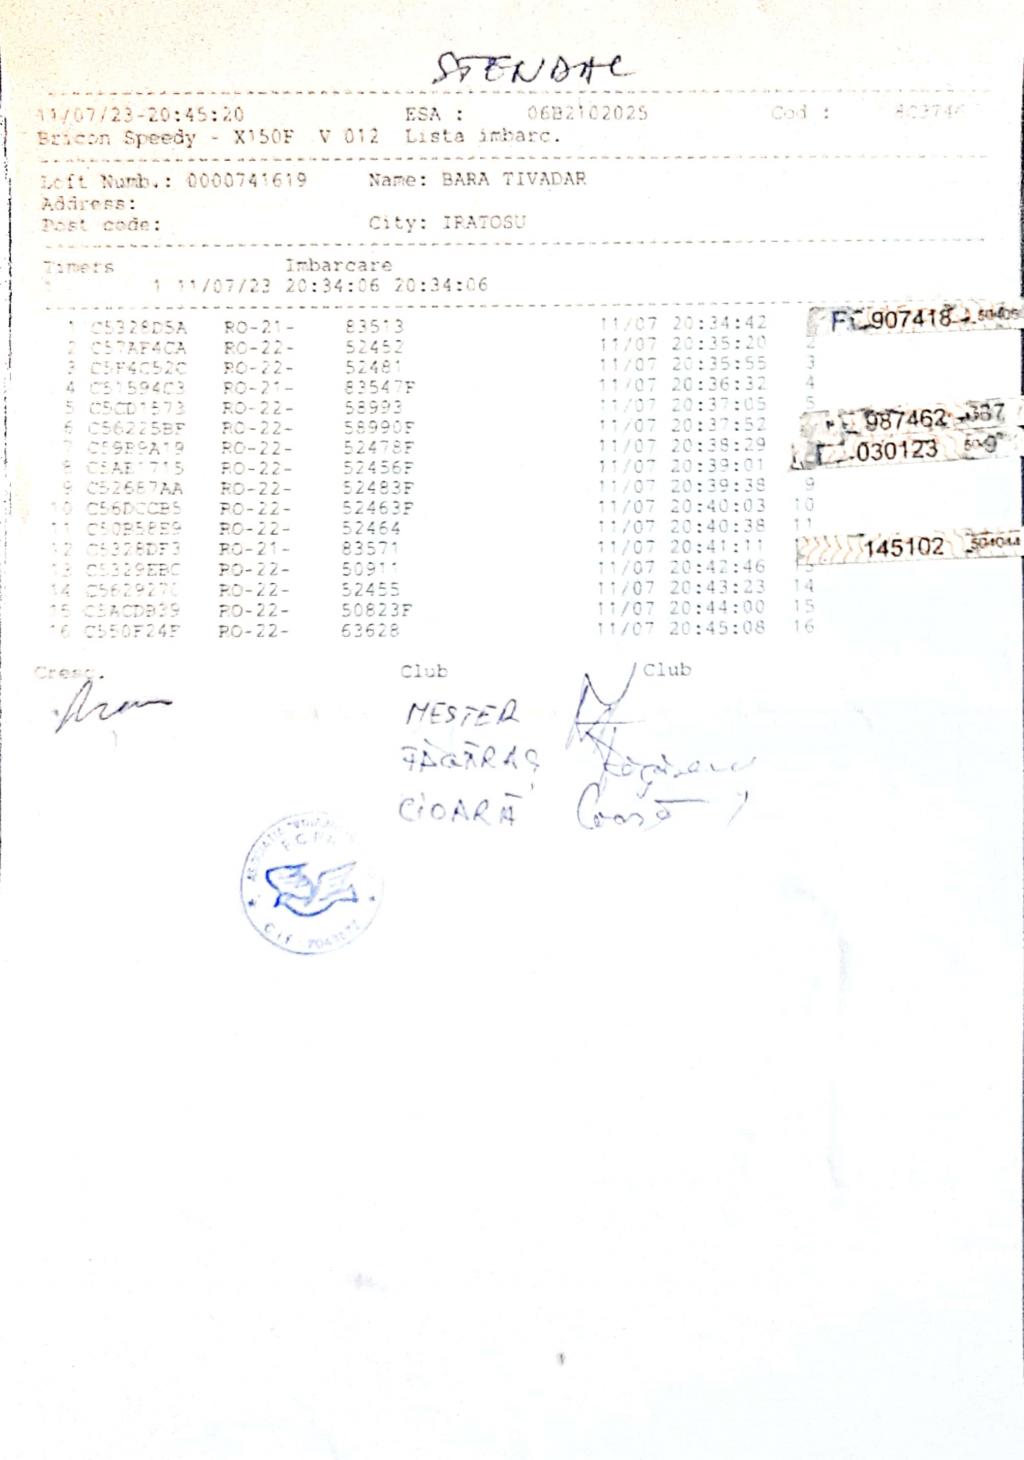 STENDAL
11/07/23-20:45:20 ESA : 06B2102025 Cod :
Bricon Speedy - X150F V 012 Lista imbarc.
Loft Numb.: 0000741619 Name: BARA TIVADAR
Address:
Post code: City: IRATOSU
Timers Imbarcare
1 11/07/23 20:34:06 20:34:06
1 C5328D5A RO-21- 83513 11/07 20:34:42 907418
2 C57AF4CA RO-22- 52452 11/07 20:35:20 2
3 C5F4C52C RO-22- 52481 11/07 20:35:55 3
4 C51594C3 RO-21- 83547F 11/07 20:36:32 4
5 C5CD1573 RO-22- 58993 11/07 20:37:05 5
6 C56225BF RO-22- 58990F 11/07 20:37:52 987462
7 C59B9A19 RO-22- 52478F 11/07 20:38:29 030123
8 C5AE1715 RO-22- 52456F 11/07 20:39:01
9 C52687AA RO-22- 52483F 11/07 20:39:38 9
10 C56DCCB5 RO-22- 52463F 11/07 20:40:03 10
11 C50B58E9 RO-22- 52464 11/07 20:40:38 11
12 C5328DF3 RO-21- 83571 11/07 20:41:11 145102 504044
13 C5329EBC RO-22- 50911 11/07 20:42:46
14 C5629270 RO-22- 52455 11/07 20:43:23 14
15 C5ACDB39 RO-22- 50823F 11/07 20:44:00 15
16 C550F24F RO-22- 63628 11/07 20:45:08 16
Cresc. Club Club
MESTER
FĂGĂRAȘ
CIOARĂ